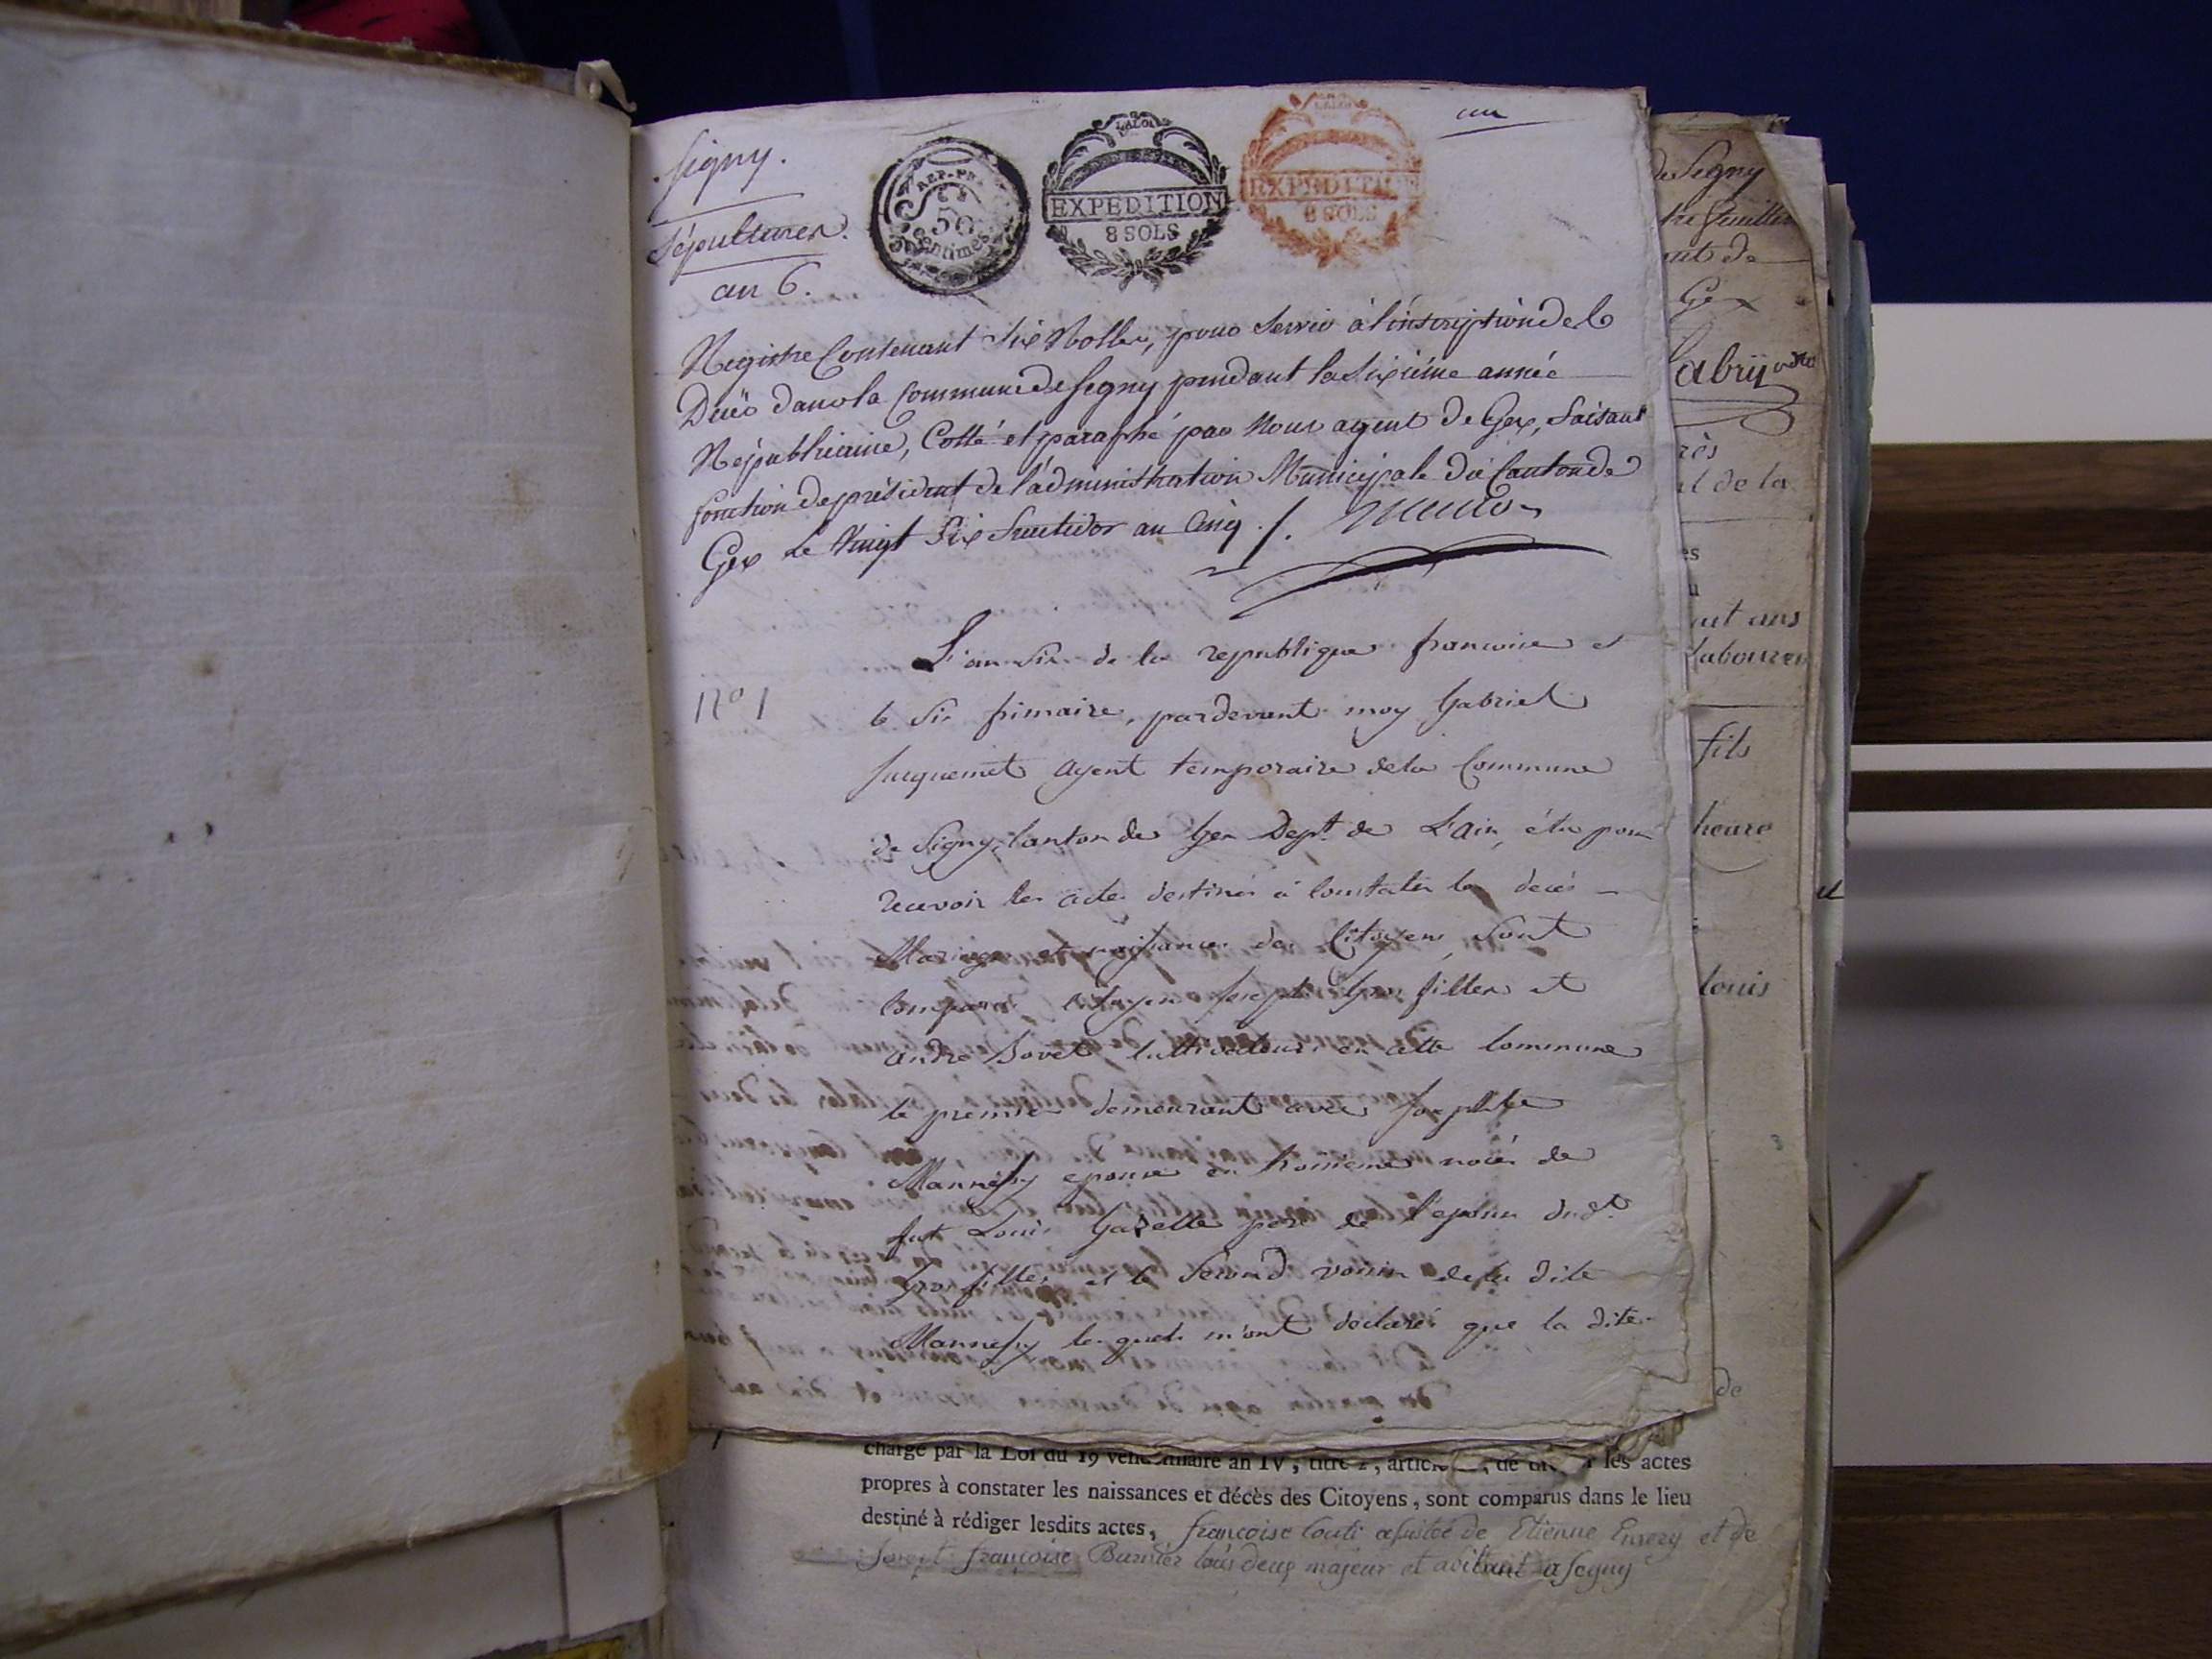 Segny.
un
Sépultures.
an 6.
REP. FRA.
50
centimes
LA LOI
EXPEDITION
8 SOLS
LA LOI
EXPEDITION
8 SOLS
Registre Contenant Six Rolles, pour servir à l'inscription des
Décès dans la Commune de Segny pendant la Sixiéme année
Républicaine, Cotté et paraphé par Nous agent de Gex, faisant
fonction de président de l'administration Municipale du Canton de
Gex Le Vingt Six fructidor an Cinq ./.
N° 1
L'an Six de la republique francoise et
le Six frimaire, pardevant moy Gabriel
Juquemet agent temporaire dela Commune
de Segny, Canton de Gex Dept. de L'Ain, élu pour
recevoir les actes destinés à Constater les décès
Mariages et naissances des Citoyens, Sont
Comparus Citoyens Joseph Grosfilley et
andré Bovet Cultivateurs en cette Commune
le premier demeurant avec
epouse en troisieme noces de
fut Louis pere de l'epouse dudt.
Grosfilley et le Second voisin dela dite
lesquels m'ont declarés que la dite
chargé par la Loi du 19 vendémiaire an IV, titre , article , de les actes
propres à constater les naissances et décès des Citoyens, sont comparus dans le lieu
destiné à rédiger lesdits actes, françoise Couti asistée de Etienne Emery et de
françoise Burnier tous deux majeur et abitant a segny
de Segny
Gex
ans
fils
heure
louis
de